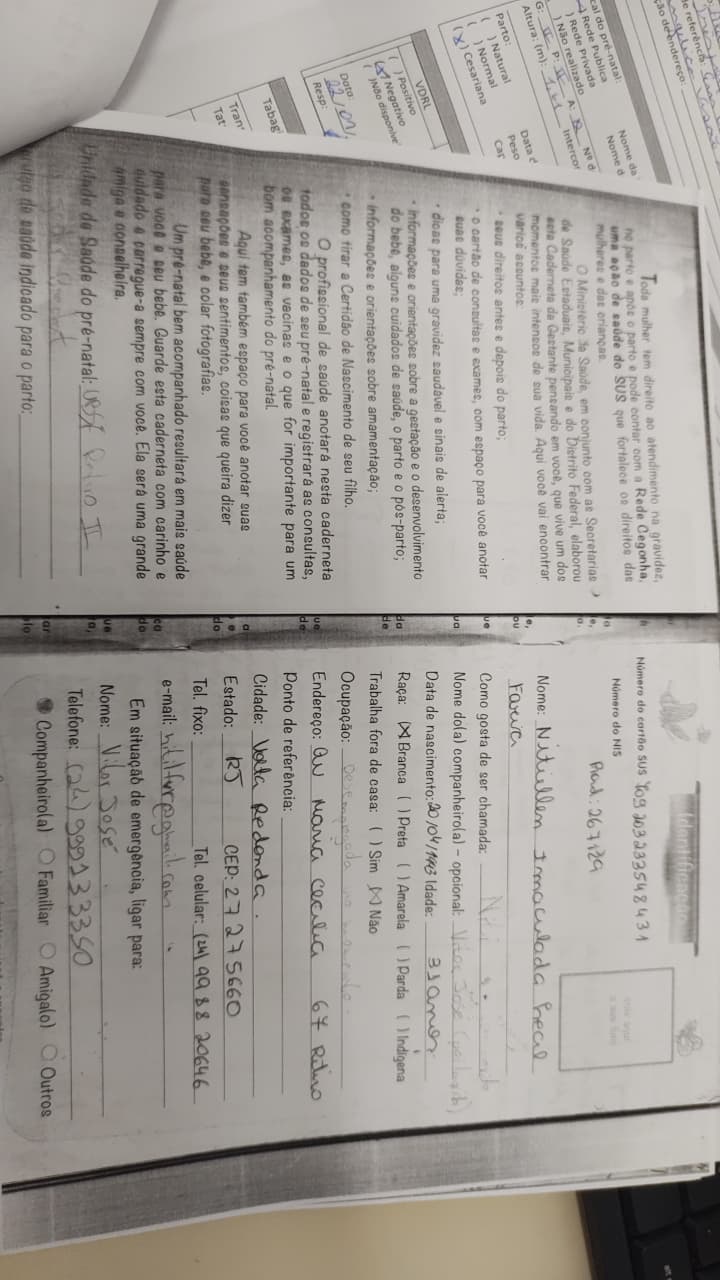 Toda mulher tem direito ao atendimento na gravidez,
no parto e após o parto e pode contar com a Rede Cegonha,
uma ação de saúde do SUS que fortalece os direitos das
mulheres e das crianças.
O Ministério da Saúde, em conjunto com as Secretarias
de Saúde Estaduais, Municipais e do Distrito Federal, elaborou
esta Caderneta da Gestante pensando em você, que vive um dos
momentos mais intensos de sua vida. Aqui você vai encontrar
vários assuntos:
• seus direitos antes e depois do parto;
• o cartão de consultas e exames, com espaço para você anotar
suas dúvidas;
• dicas para uma gravidez saudável e sinais de alerta;
• informações e orientações sobre a gestação e o desenvolvimento
do bebê, alguns cuidados de saúde, o parto e o pós-parto;
• informações e orientações sobre amamentação;
• como tirar a Certidão de Nascimento de seu filho.
O profissional de saúde anotará nesta caderneta
todos os dados de seu pré-natal e registrará as consultas,
os exames, as vacinas e o que for importante para um
bom acompanhamento do pré-natal.
Aqui tem também espaço para você anotar suas
sensações e seus sentimentos, coisas que queira dizer
para seu bebê, e colar fotografias.
Um pré-natal bem acompanhado resultará em mais saúde
para você e seu bebê. Guarde esta caderneta com carinho e
cuidado e carregue-a sempre com você. Ela será uma grande
amiga e conselheira.
Unidade de Saúde do pré-natal: Retiro II
de saúde indicado para o parto:
Identificação
Número do cartão SUS 709 2032 3354 8431
Número do NIS
Pront: 267129
Nome: Nitiellen Imaculada Leal
Faria
Como gosta de ser chamada:
Nome do(a) companheiro(a) – opcional: Vitor José
Data de nascimento: 20/04/1993 Idade: 31 anos
Raça: (X) Branca ( ) Preta ( ) Amarela ( ) Parda ( ) Indígena
Trabalha fora de casa: ( ) Sim (X) Não
Ocupação: Desempregada no momento
Endereço: AV Maria Cecilia 67 Retiro
Ponto de referência:
Cidade: Volta Redonda.
Estado: RJ CEP: 27275660
Tel. fixo: Tel. celular: (24) 9988 20646
e-mail:
Em situação de emergência, ligar para:
Nome: Vitor José
Telefone: (24) 999133350
Companheiro(a) Familiar Amiga(o) Outros
cal do pré-natal:
) Rede Publica
) Rede Privada
) Não realizado
Altura: (m):
Parto:
( ) Natural
( ) Normal
(X) Cesariana
VDRL
( ) Positivo
(X) Negativo
( )Não disponível
Data:
22/01/
Resp:
Nome da